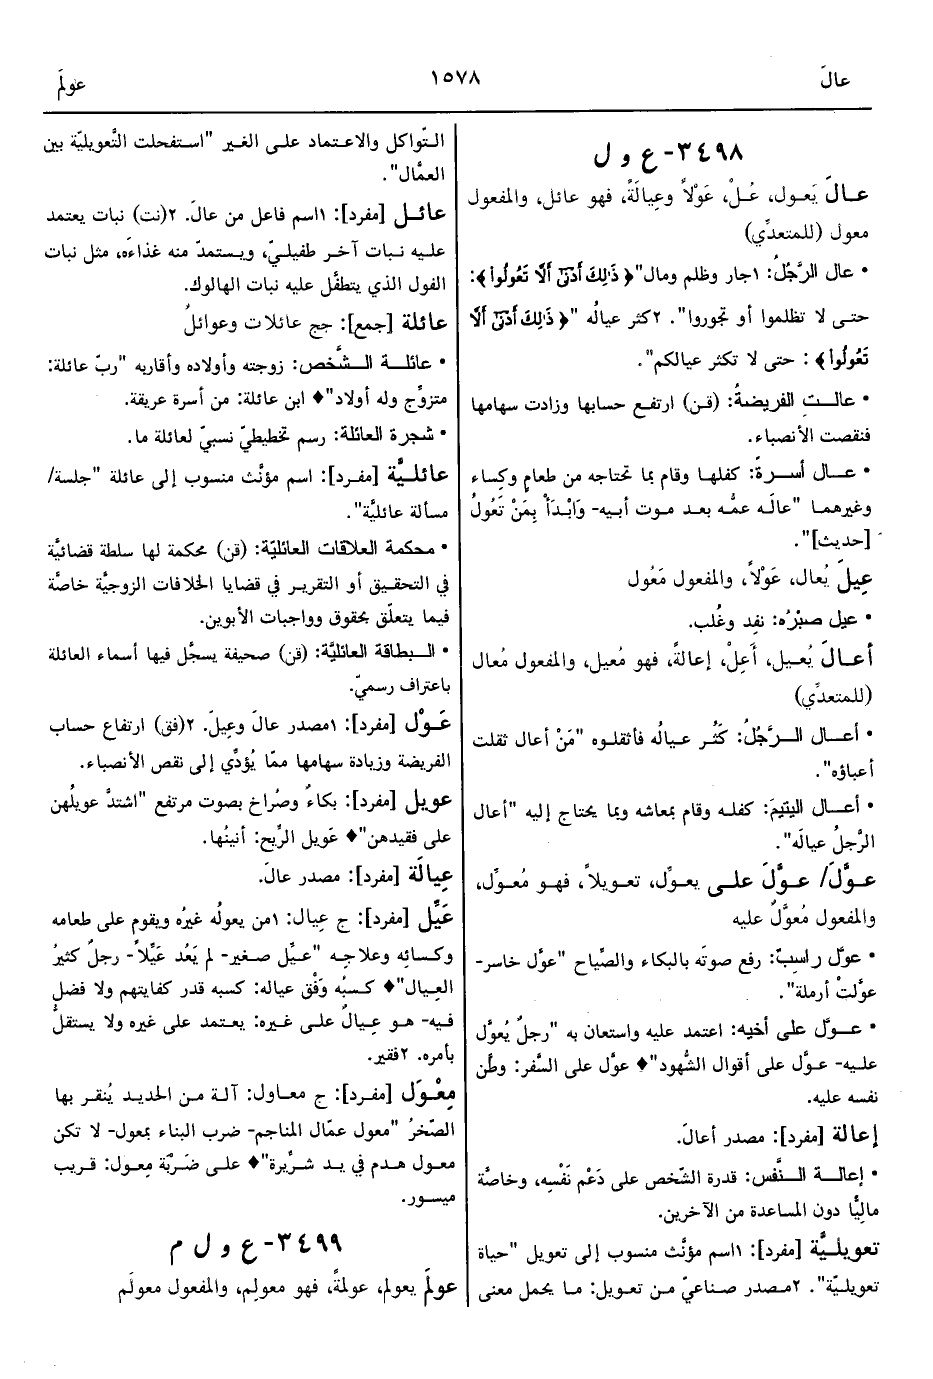 عالَ
١٥٧٨
عولمَ
٣٤٩٨- ع و ل
عـالَ يَعـول، عُـلْ، عَوْلاً وعِيالَةً، فهو عائل، والمفعول
معول (للمتعدِّي)
• عال الرَّجُلُ: ١جار وظلم ومال"﴿ ذَٰلِكَ أَدْنَىٰٓ أَلَّا تَعُولُوا۟ ﴾:
حتـى لا تظلموا أو تجوروا". ٢كثر عيالُه "﴿ ذَٰلِكَ أَدْنَىٰٓ أَلَّا
تَعُولُوا۟ ﴾ : حتى لا تكثر عيالكم".
• عالـت الفريضةُ: (قـن) ارتفـع حسابها وزادت سهامها
فنقصت الأنصباء.
• عـال أسـرةً: كفلـها وقـام بما تحتاجه من طعامٍ وكِساء
وغيرهمـا "عالَـه عمُّـه بعـد موت أبيـه- وَابْدَأْ بِمَنْ تَعُولُ
[حديث]".
عِيلَ يُعال، عَوْلاً، والمفعول مَعُول
• عيل صبْرُه: نفِد وغُلب.
أعـالَ يُعـيل، أَعِلْ، إعالةً، فهو مُعيل، والمفعول مُعال
(للمتعدِّي)
• أعـال الـرَّجلُ: كَثُـر عـيالُه فأثقلـوه "مَنْ أعال ثقلت
أعباؤه".
• أعـال اليتيمَ: كفلـه وقام بمعاشه وبما يحتاج إليه "أعال
الرَّجلُ عيالَه".
عوَّلَ/ عـوَّلَ علـى يعـوِّل، تعـويلاً، فهـو مُعـوِّل،
والمفعول مُعوَّلٌ عليه
• عوَّل راسبٌ: رفع صوتَه بالبكاء والصِّياح "عوَّل خاسر-
عوَّلتْ أرملة".
• عـوَّل على أخيه: اعتمد عليه واستعان به "رجلٌ يُعوَّل
علـيه- عـوَّل على أقوال الشُّهود"♦ عوَّل على السَّفر: وطّن
نفسه عليه.
إعالة [مفرد]: مصدر أعالَ.
• إعالـة الـنَّفْس: قدرة الشَّخص على دَعْم نَفْسِه، وخاصَّة
ماليًّا دون المساعدة من الآخرين.
تعويليَّة [مفرد]: ١اسم مؤنَّث منسوب إلى تعويل "حياة
تعويليّة". ٢مـصدر صـناعيّ مـن تعـويل: مـا يحمل معنى
الـتَّواكل والاعـتماد علـى الغـير "استفحلت التَّعويليّة بين
العمَّال".
عائـل [مفرد]: ١اسم فاعل من عالَ. ٢(نت) نبات يعتمد
علـيه نـبات آخـر طفيلـيّ، ويـستمدّ منه غذاءَه، مثل نبات
الفول الذي يتطفَّل عليه نبات الهالوك.
عائلة [جمع]: جج عائلات وعوائلُ
• عائلـة الـشَّخص: زوجته وأولاده وأقاربه "ربّ عائلة:
متزوِّج وله أولاد"♦ ابن عائلة: من أسرة عريقة.
• شجرة العائلة: رسم تخطيطيّ نسبيّ لعائلة ما.
عائلـيَّة [مفـرد]: اسـم مؤنَّث منسوب إلى عائلة "جلسة/
مسألة عائليَّة".
• محكمة العلاقات العائليّة: (قن) محكمة لها سلطة قضائيَّة
في التحقيـق أو التقرير في قضايا الخلافات الزوجيَّة خاصَّة
فيما يتعلّق بحقوق وواجبات الأبوين.
• الـبطاقة العائليَّة: (قن) صحيفة يسجَّل فيها أسماء العائلة
باعتراف رسميّ.
عَـوْل [مفرد]: ١مصدر عالَ وعِيلَ. ٢(فق) ارتفاع حساب
الفريضة وزيادة سهامها ممّا يُؤدِّي إلى نقص الأنصباء.
عويل [مفرد]: بكاءٌ وصُراخ بصوت مرتفع "اشتدّ عويلُهن
على فقيدهن"♦ عَويل الرِّيح: أنينُها.
عِيالَة [مفرد]: مصدر عالَ.
عَيِّل [مفرد]: ج عِيال: ١من يعولُه غيرُه ويقوم على طعامه
وكـسائِه وعلاجـه "عـيِّل صـغير- لم يَعُد عَيِّلاً- رجلٌ كثيرُ
العِيال"♦ كـسبُه وَفْق عياله: كسبه قدر كفايتهم ولا فضل
فـيه- هـو عِـيالٌ علـى غـيره: يعـتمد على غيره ولا يستقلُّ
بأمره. ٢فقير.
مِعْـوَل [مفـرد]: ج معـاول: آلـة مـن الحديـد يُنقـر بهـا
الصّخرُ "معول عمّال المناجم- ضرب البناء بمعول- لا تكن
معـول هـدم في يـد شرِّيرة"♦ علـى ضَرْبَةِ معول: قريب
ميسور.
٣٤٩٩- ع و ل م
عولَمَ يعولم، عولمةً، فهو معولِم، والمفعول معولَم